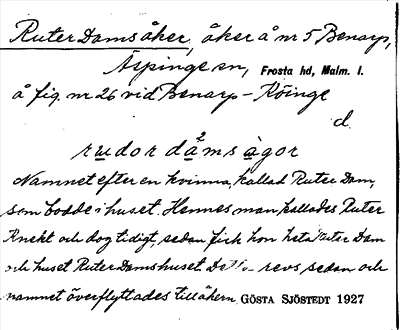 Ruter Dams åker, åker å nr 5 Benarp,
Äspinge sn, Frosta hd, Malm. l.
å fig. nr 26 vid Benarp - Köinge
d.
rudor damsågor
Namnet efter en kvinna, kallad Ruter Dam,
som bodde i huset. Hennes man kallades Ruter
Knekt och dog tidigt, sedan fick hon heta Ruter Dam
och huset Ruter Damshuset. revs sedan och
namnet överflyttades till åkern. GÖSTA SJÖSTEDT 1927